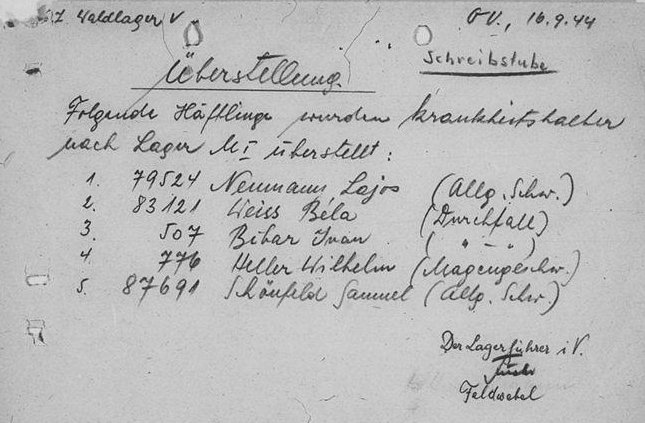 Waldlager V
OV., 16.9.44
Schreibstube
Überstellung.
Folgende Häftlinge wurden krankheitshalber
nach Lager M I überstellt:
1. 79524 Neumann Lajos (Allg. Schw.)
2. 83121 Weiss Béla (Durchfall)
3. 507 Bihar Ivan ( " — " )
4 776 Heller Wilhelm (Magengeschw.)
5. 87691 Schönfeld Samuel (Allg. Schw.)
Der Lagerführer i.V.
Feldwebel